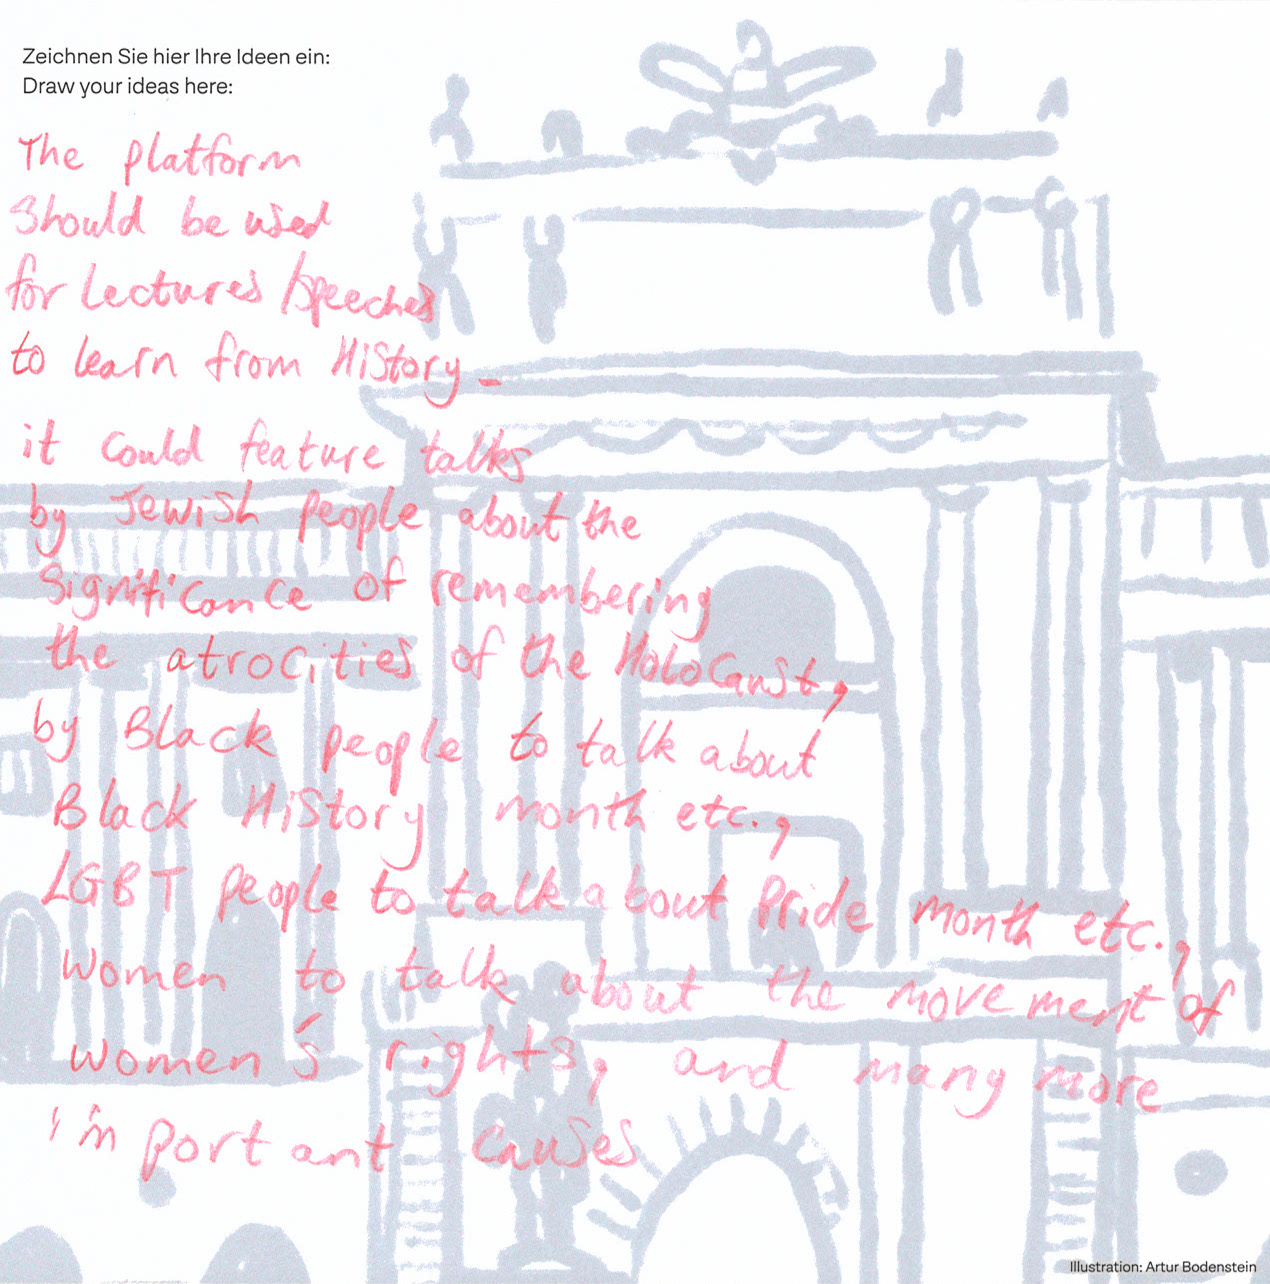 Zeichnen Sie hier Ihre Ideen ein:
Draw your ideas here:
The platform
Should be used
for Lectures/speeches
to learn from HiStory -
it could feature talks
by Jewish people about the
Significance of remembering
the atrocities of the Holocaust,
by Black people to talk about
Black HiStory month etc.,
LGBT people to talk about Pride month etc.,
Women to talk about the movement of
women's rights, and many more
important causes
Illustration: Artur Bodenstein